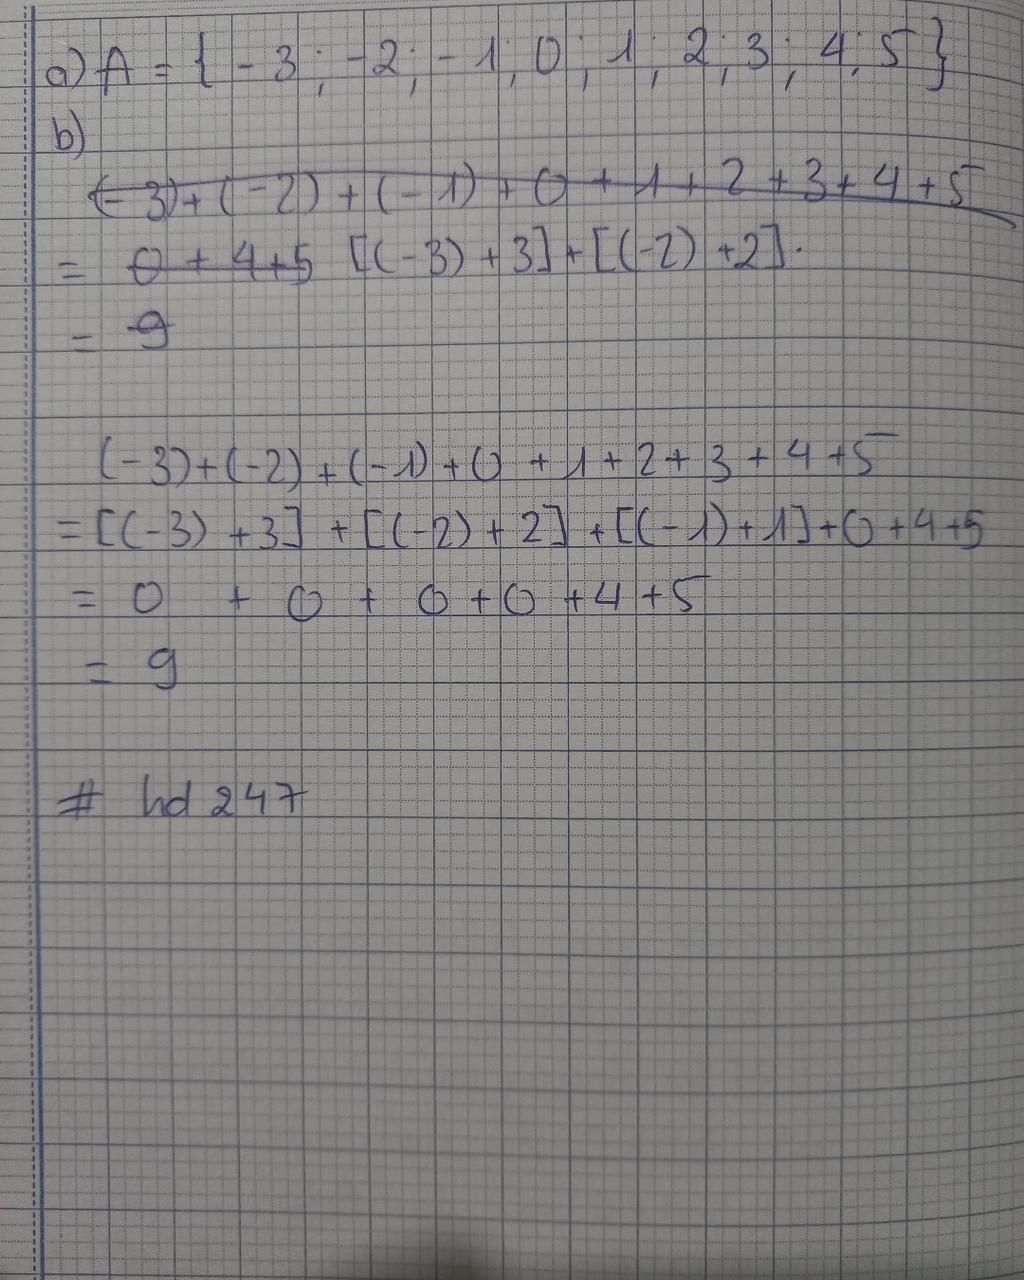 a) A = { - 3 ; - 2 ; - 1 ; 0 ; 1 ; 2 ; 3 ; 4 ; 5 }
b)
(- 3) + ( - 2) + ( - 1) + 0 + 1 + 2 + 3 + 4 + 5
= 0 + 4 + 5 [(- 3) + 3] + [(-2) + 2].
= 9
(- 3) + (-2) + (-1) + 0 + 1 + 2 + 3 + 4 + 5
= [(-3) + 3] + [(-2) + 2] + [(-1) + 1] + 0 + 4 + 5
= 0 + 0 + 0 + 0 + 4 + 5
= 9
# hd 247